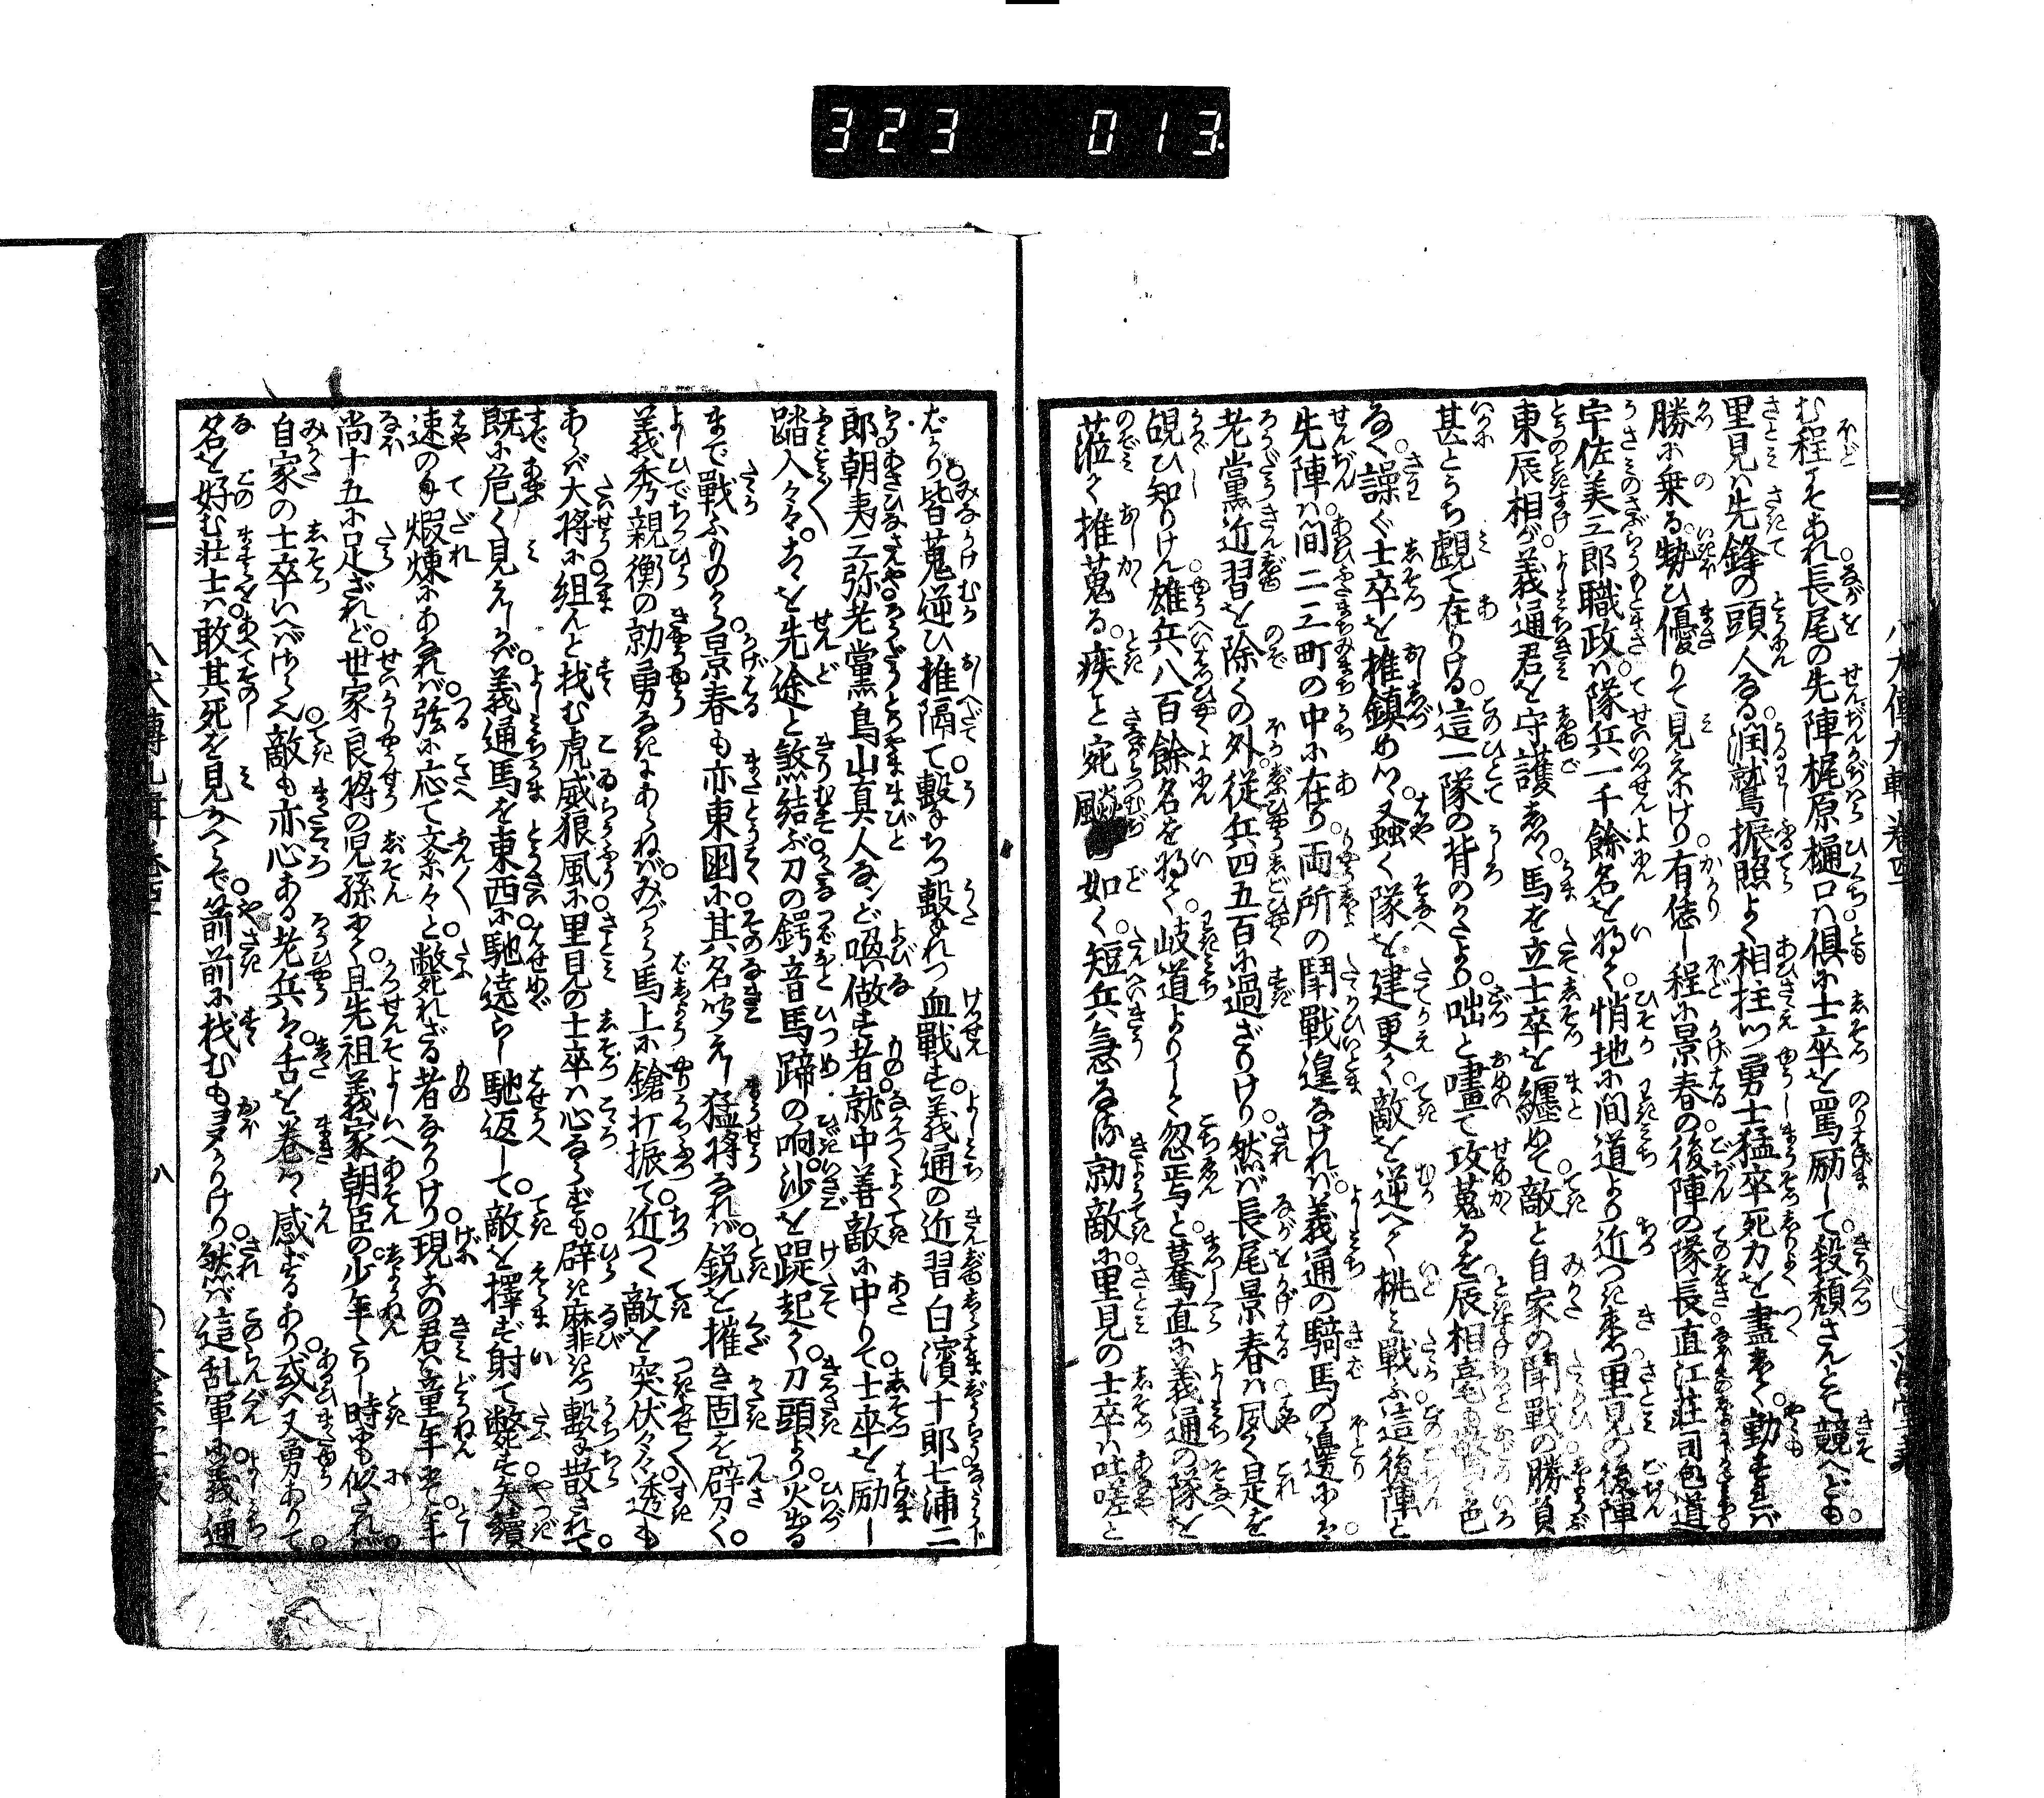 323 013
む程にこそあれ長尾の先陣梶原樋口は倶に士卒を罵励して殺頽さんとぞ競へども
里見は先鋒の頭人なる潤鷲振照よく相拄つ勇士猛卒死力を盡して動もすれば
勝に乗る勢ひ優りて見えにけり有恁し程に景春の後陣の隊長直江荘司包道
宇佐美三郎職政は隊兵一千餘名を将て悄地に間道より近つき来つ里見の後陣
東辰相が義通君を守護しつゝ馬を立士卒を纏めて敵と自家の鬪戰の勝負
甚とうち覰て在りける這一隊の背のかたより咄と嘩て攻蒐るを辰相毫も驚く色
なく譟ぐ士卒を推鎮めつゝ蚤く隊を建更て敵を逆へて挑み戰ふ這後陣と
先陣は間二三町の中に在り両所の鬪戰遑なければ義通の騎馬の邊には
老黨近習を除くの外従兵四五百に過ざりけり然ば長尾景春は夙く是を
覘ひ知りけん雄兵八百餘名を将て岐道よりして忽焉と驀直に義通の隊を
蒞て推蒐る疾こと宛颷の如く短兵急なる勍敵に里見の士卒は吐嗟と
ばかり皆蒐逆ひ推隔て撃もうち撃れつ血戰す義通の近習白濱十郎七浦二
郎朝夷三弥老黨鳥山真人なンど喚做す者就中善敵に中りて士卒を励し
踏入々々こゝを先途と煞結ぶ刀の鍔音馬蹄の响沙を踶起て刀頭より火出る
まで戰ふものから景春も亦東國に其名聞えし猛将なれば鋭を摧き固を劈く
義秀親衡の勍勇なきにあらねばみづから馬上に鎗打振て近つく敵を突伏々々透も
あらば大将に組んと找む虎威狼風に里見の士卒は心ならずも辟き靡きつ撃散されて
既に危く見えしかば義通馬を東西に馳遶らし馳返して敵を擇ず射て斃す矢續
速の手煆煉にあなれば弦に応て叉々と斃れざる者なかりけり現この君は童年にして年
尚十五に足ざれど世家良将の児孫にて且先祖義家朝臣の少年たりし時にも似たれば
自家の士卒はいへばさらなり敵も亦心ある老兵は舌を巻つゝ感ずるあり或は又勇ありて
名を好む壮士は敢其死を見かへらで箭前に找むも多かりけり然ば這乱軍に義通
八犬傳九輯巻四